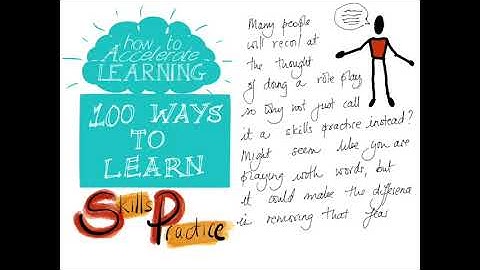 how to
Accelerate
LEARNING
100 WAYS
TO
LEARN
Skills
Practice
Many people
will recoil at
the thought
of doing a role play
so why not just call
it a skills practice instead?
Might seem like you are
playing with words, but
it could make the difference
is removing that fear